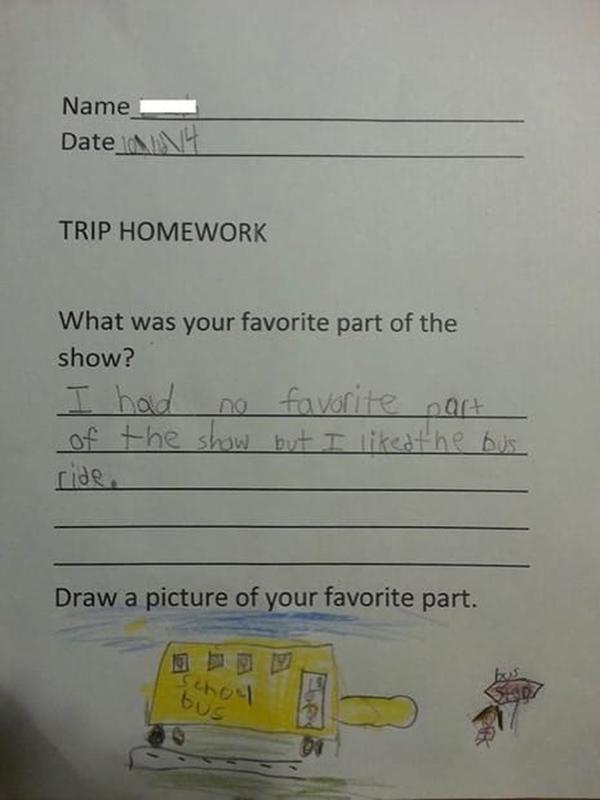 Name
Date
TRIP HOMEWORK
What was your favorite part of the
show?
I had no favorite part
of the show but I liked the bus
ride.
Draw a picture of your favorite part.
school
bus
bus
stop